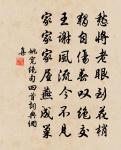 愁將老眼到花梢
獨自傷春嘆絕交
王謝風流今不見
家家屋燕成巢
姚寬絕句四首詞典網
集